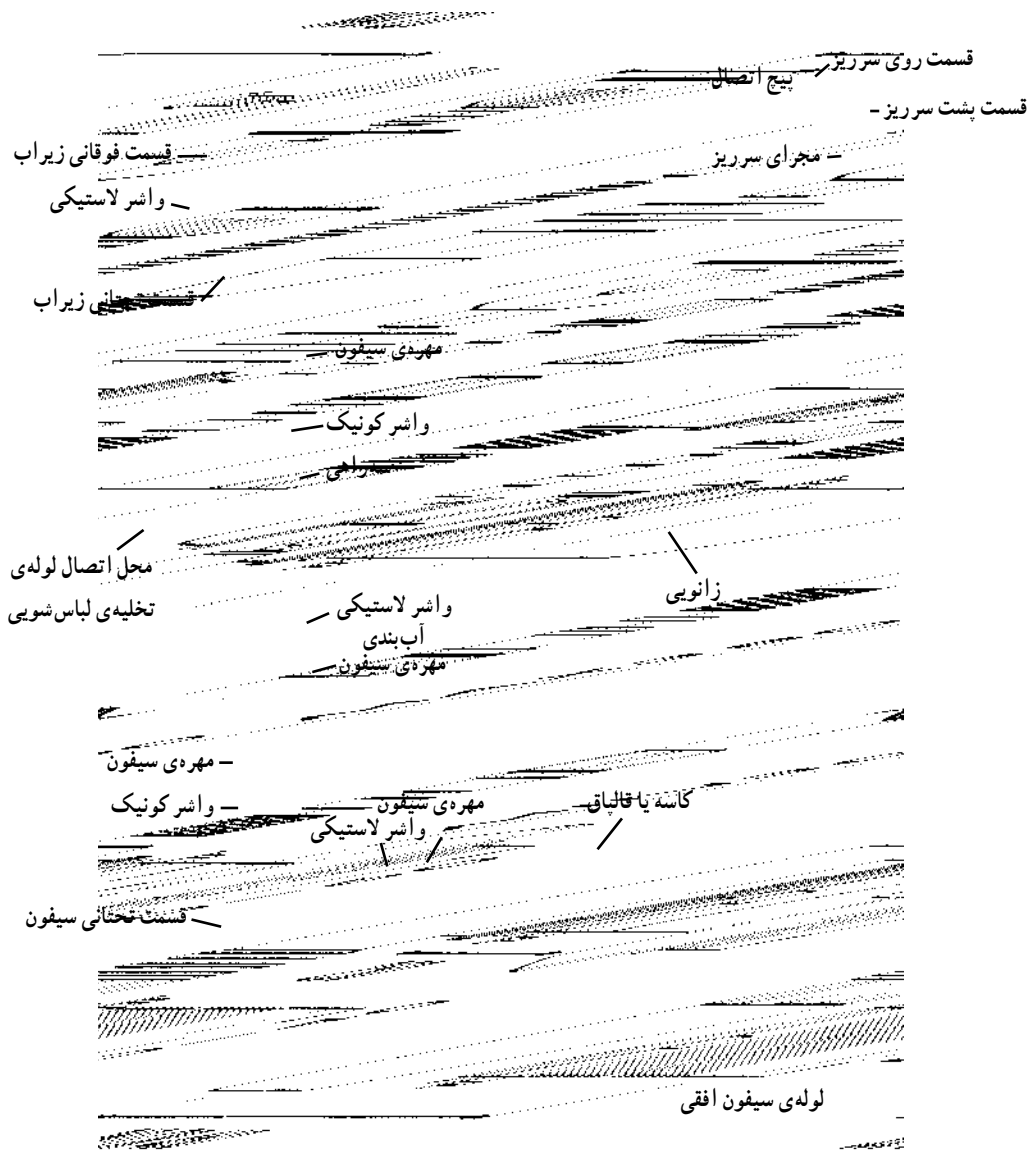 قسمت روی سرریز
پیچ اتصال
قسمت پشت سرریز
قسمت فوقانی زیراب
مجرای سرریز
واشر لاستیکی
قسمت تحتانی زیراب
مهره‌ی سیفون
واشر کونیک
راهی
محل اتصال لوله‌ی
تخلیه‌ی لباس‌شویی
زانویی
واشر لاستیکی
آب‌بندی
مهره‌ی سیفون
مهره‌ی سیفون
واشر کونیک
مهره‌ی سیفون
کاسه یا قالپاق
واشر لاستیکی
قسمت تحتانی سیفون
لوله‌ی سیفون افقی